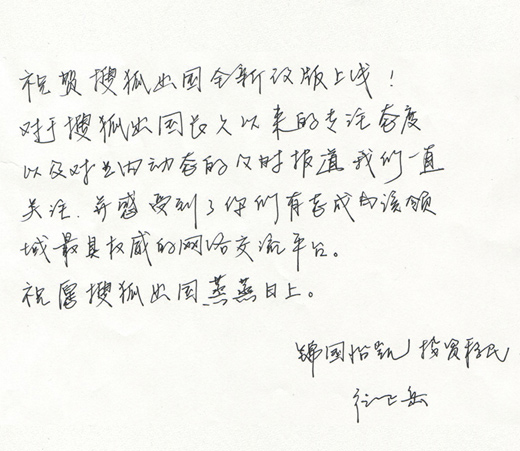 祝贺搜狐出国全新改版上线！
对于搜狐出国长久以来的专注态度
以及对业内动态的及时报道我们一直
关注.并感受到了你们有志成为该领
域最具权威的网络交流平台。
祝愿搜狐出国蒸蒸日上。
锦国怡凯投资移民
岳